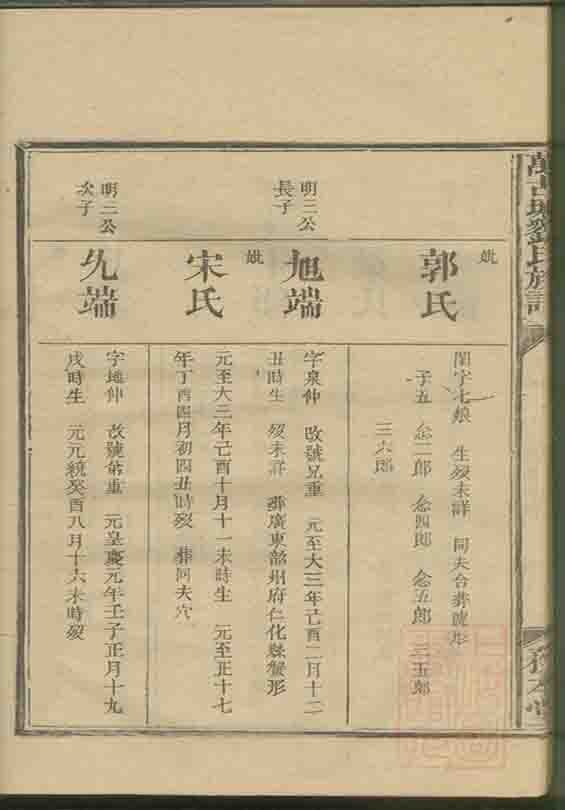 萬古 劉氏族譜
妣
郭氏
閨字七娘 生歿未詳 同夫合葬虎形
子五 念二郎 念四郎 念五郎 三五郎
三六郎
明三公
長子
旭端
字泉仲 改號兄重 元至大二年己酉二月十二
丑時生 歿未詳 葬廣東韶州府仁化縣蟹形
妣
宋氏
元至大二年己酉十月十一未時生 元至正十七
年丁酉四月初四丑時歿 葬同夫穴
明三公
次子
允端
字地仲 改號弟重 元皇慶元年壬子正月十九
戌時生 元元統癸酉八月十六未時歿